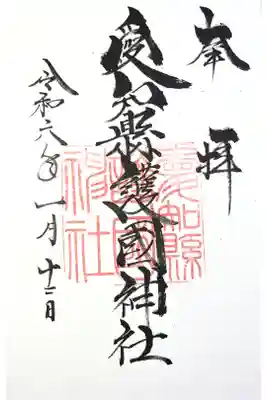 奉拝
愛知縣護國神社
令和六年一月十二日
愛知縣
護國
神社